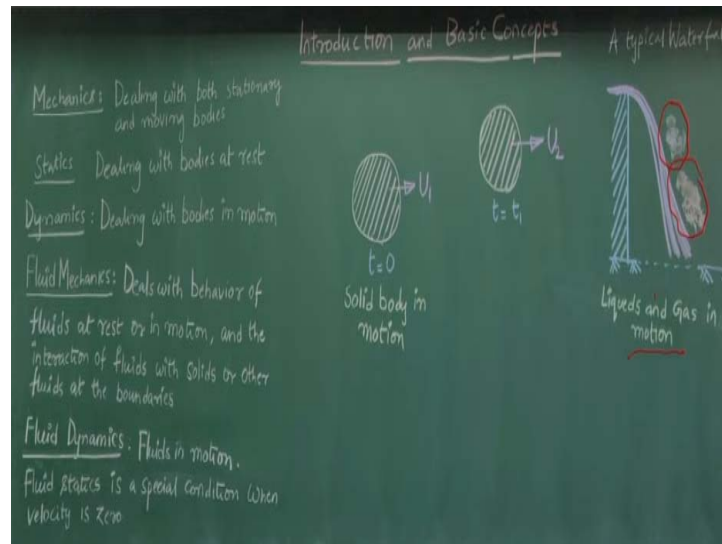 Introduction and Basic Concepts
Mechanics: Dealing with both stationary
and moving bodies
Statics Dealing with bodies at rest
Dynamics: Dealing with bodies in motion
Fluid Mechanics: Deals with behavior of
fluids at rest or in motion, and the
interaction of fluids with solids or other
fluids at the boundaries
Fluid Dynamics: Fluids in motion.
Fluid statics is a special condition when
velocity is zero
U1
t=0
Solid body in
motion
U2
t=t1
A typical Waterfal
Liqueds and Gas in
motion